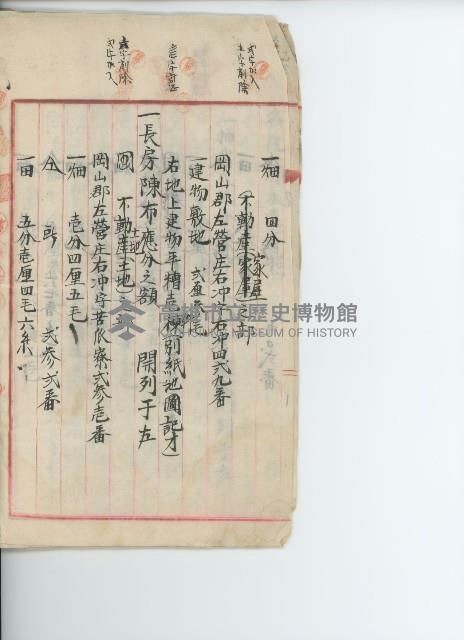 弍字加入
壱字削除
一畑 四分
不動產家屋之部
岡山郡左營庄右冲字右冲四弍九番
一建物敷地
右地上建物平糟壱棟別紙地圖記才
一長房陳布應分之額 開列于左
圓 不動產土地
岡山郡左營庄右冲字苦瓜寮弍参壱番
一畑 壱分四厘五毛
仝 所 弍参弍番
一田 五分壱厘四毛六糸
高雄市立歷史博物館
KAOHSIUNG MUSEUM OF HISTORY